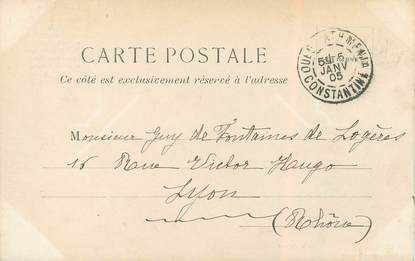 CARTE POSTALE
Ce côté est exclusivement réservé à l'adresse
JANV
05
CONSTANTINE
Monsieur Guy de Fontaines de Logères
16 Rue Victor Hugo
Lyon
(Rhône)